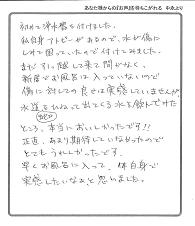 あなた様からの『お声』をきかせて下さい。
初めて浄水器を付けました。
私自身アトピーがあるので、水が傷に
しみて困っていたので付けてみました。
まだ引っ越して来て間がなく、
新居でお風呂に入っていないので
傷に対しての良さは実感していませんが、
水道をひねって出てくる水を飲んでみた
ところ、本当においしかったです!!
正直、あまり期待していなかったので
とてもうれしかったです。
早くお風呂に入って、体自身で
実感したいなぁと思いました。